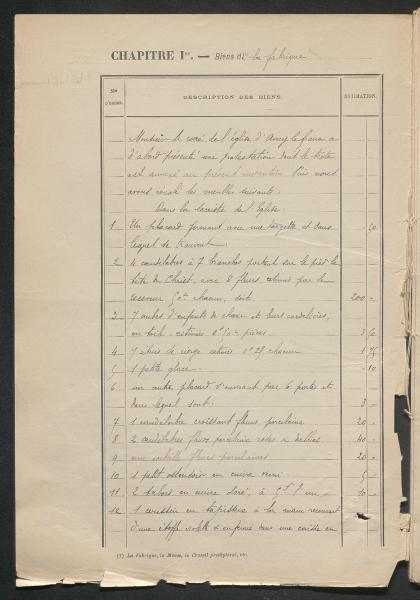 CHAPITRE Ier. — Biens de la fabrique
Nos d'ordre.
DESCRIPTION DES BIENS.
ESTIMATION.
Monsieur le curé de l'église d'Auxy le franc a
d'abord présenté une protestation dont le texte
est annexé au présent inventaire. Puis nous
avons récolé les meubles suivants.
Dans la sacristie de l'Eglise.
1 Un placard fermant avec une targette et dans " 50
lequel se trouvent
2 4 candélabres à 7 branches portant sur le pied la
tête du Christ avec 8 fleurs, estimés par le
receveur 50f chacun, soit 200 "
3 7 aubes d'enfants de chœur et leurs cordelières,
en toile, estimées 0f50 pièce. 3 50
4 7 de rouge estimés 0f25 chacun 1 75
5 1 petite glace " 10
6 un autre placard s'ouvrant par 6 portes et
dans lequel sont. 3 "
7 1 candélabre croissant fleurs porcelaine 20 "
8 2 candélabres fleurs porcelaine roses et dahlias 40 "
9 une corbeille fleurs porcelaines 20 "
10 1 petit ostensoir en cuivre verni 5 "
11 2 en cuivre doré, à 5f l'un 10 "
12 1 coussin en tapisserie à la main recouvert
d'une étoffe et enfermé dans une caisse en
(1) La Fabrique, la Mense, le Conseil presbytéral, etc.